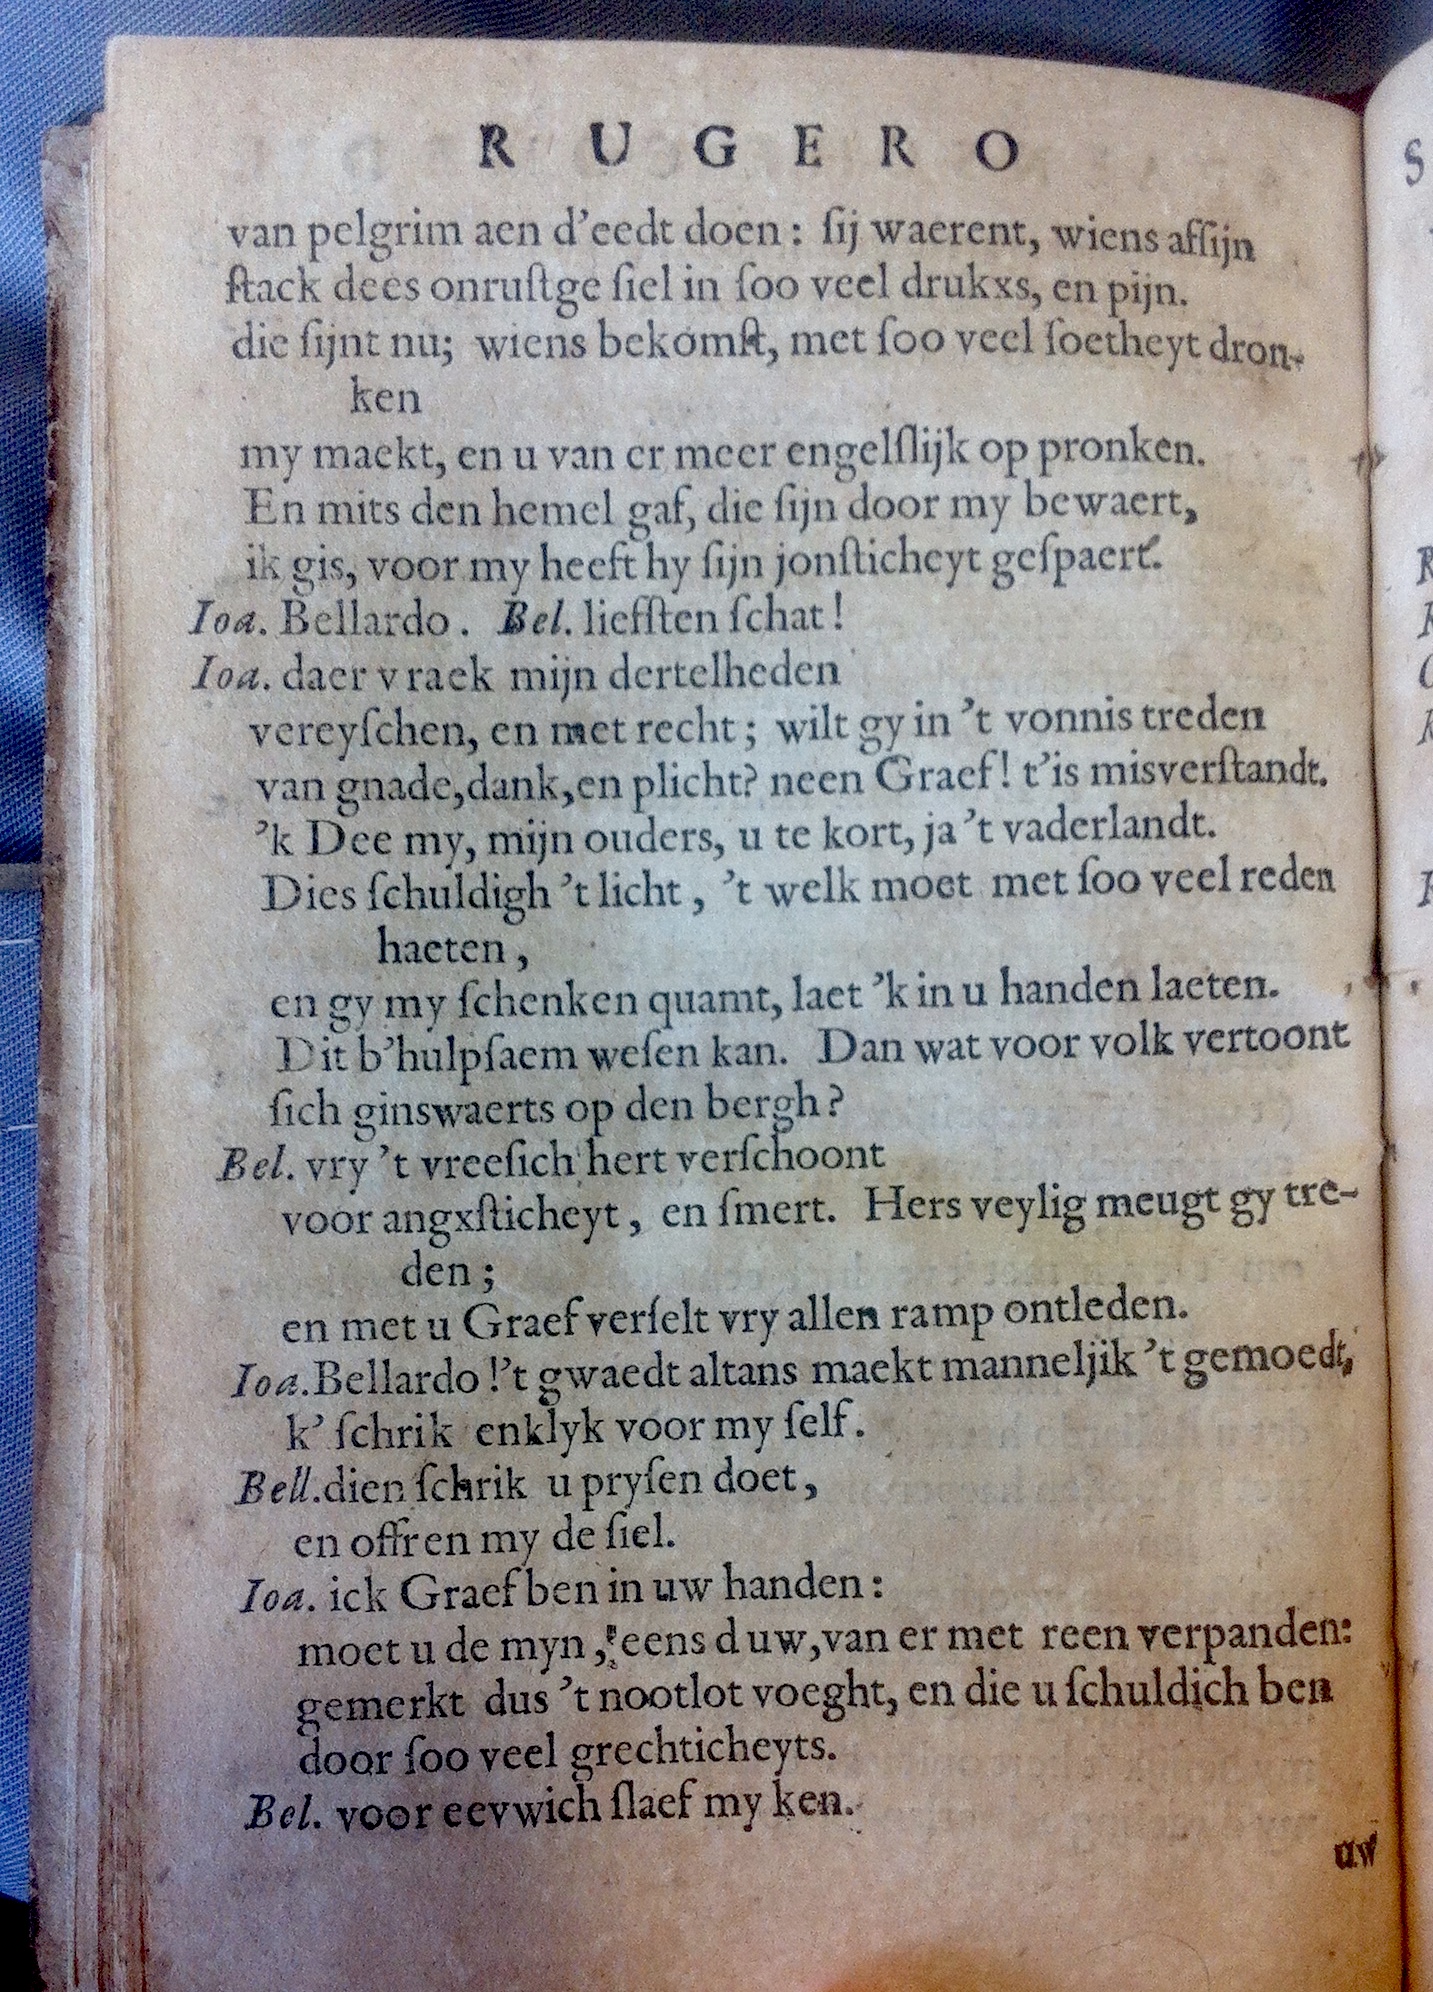 R U G E R O
van pelgrim aen d’eedt doen : ſij waerent, wiens afſijn
ſtack dees onruſtge ſiel in ſoo veel drukxs, en pijn.
die ſijnt nu; wiens bekomſt, met ſoo veel ſoetheyt dron-
ken
my maekt, en u van er meer engelſlijk op pronken.
En mits den hemel gaf, die ſijn door my bewaert,
ik gis, voor my heeft hy ſijn jonſticheyt geſpaert.
Ioa. Bellardo . Bel. liefſten ſchat !
Ioa. daer vraek mijn dertelheden
vereyſchen, en met recht ; wilt gy in ’t vonnis treden
van gnade,dank,en plicht? neen Graef! t’is misverſtandt.
’k Dee my, mijn ouders, u te kort, ja ’t vaderlandt.
Dies ſchuldigh ’t licht , ’t welk moet met ſoo veel reden
haeten ,
en gy my ſchenken quamt, laet ’k in u handen laeten.
Dit b’hulpſaem weſen kan. Dan wat voor volk vertoont
ſich ginswaerts op den bergh ?
Bel. vry ’t vreeſich hert verſchoont
voor angxſticheyt , en ſmert. Hers veylig meugt gy tre-
den ;
en met u Graef verſelt vry allen ramp ontleden.
Ioa.Bellardo !’t gwaedt altans maekt manneljik ’t gemoedt,
k’ ſchrik enklyk voor my ſelf.
Bell.dien ſchrik u pryſen doet ,
en offren my de ſiel.
Ioa. ick Graef ben in uw handen :
moet u de myn , eens d uw,van er met reen verpanden:
gemerkt dus ’t nootlot voeght, en die u ſchuldich ben
door ſoo veel grechticheyts.
Bel. voor eevwich ſlaef my ken.
uw